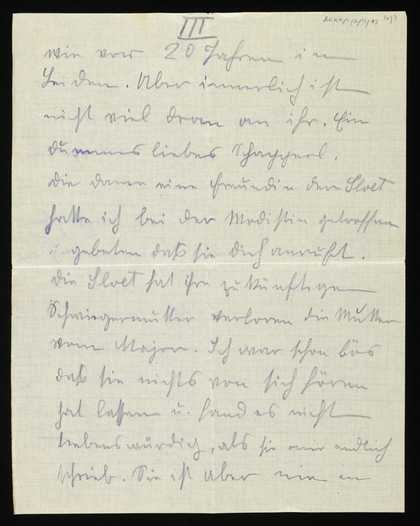 III
wie vor 20 Jahren im
Leiden. Aber innerlich ist
nicht viel dran an ihr. Ein
dummes liebes Schapperl.
Die dann eine Freundin der Sloet
hatte ich bei der Modistin getroffen
gebeten daß sie Dich anruft.
Die Sloet hat ihre zukünftige
Schwiegermutter verloren die Mutter
vom Major. Ich war schon bös
daß sie nichts von sich hören
hat lassen u. fand es nicht
liebenswürdig, als sie mir endlich
schrieb. Sie ist aber nun in